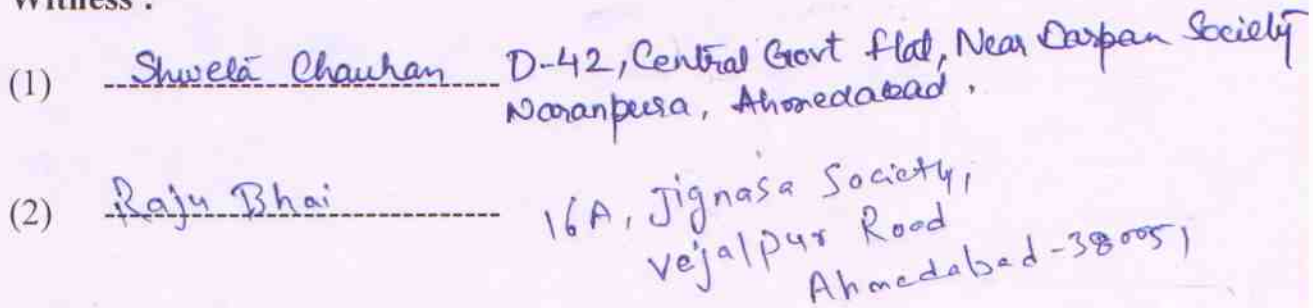 Witness :
(1) Shweta Chauhan D-42, Central Govt flat, Near Darpan Society
Naranpura, Ahmedabad.
(2) Raju Bhai 16A, Jignasa Society,
Vejalpur Road
Ahmedabad-380051